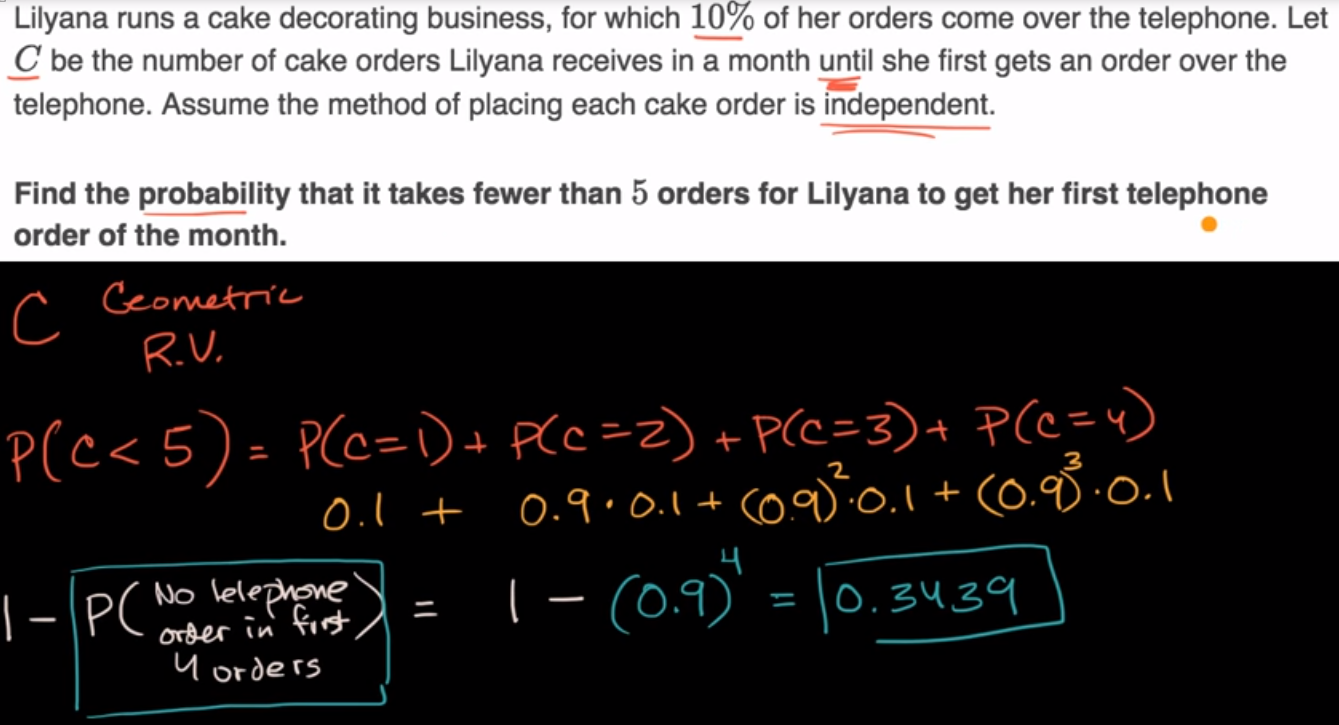 Lilyana runs a cake decorating business, for which 10% of her orders come over the telephone. Let
C be the number of cake orders Lilyana receives in a month until she first gets an order over the
telephone. Assume the method of placing each cake order is independent.
Find the probability that it takes fewer than 5 orders for Lilyana to get her first telephone
order of the month.
C Geometric
R.V.
P(C < 5) = P(C=1) + P(C=2) + P(C=3) + P(C=4)
0.1 + 0.9 · 0.1 + (0.9)² · 0.1 + (0.9)³ · 0.1
1 - P( No telephone order in first 4 orders ) = 1 - (0.9)⁴ = 0.3439